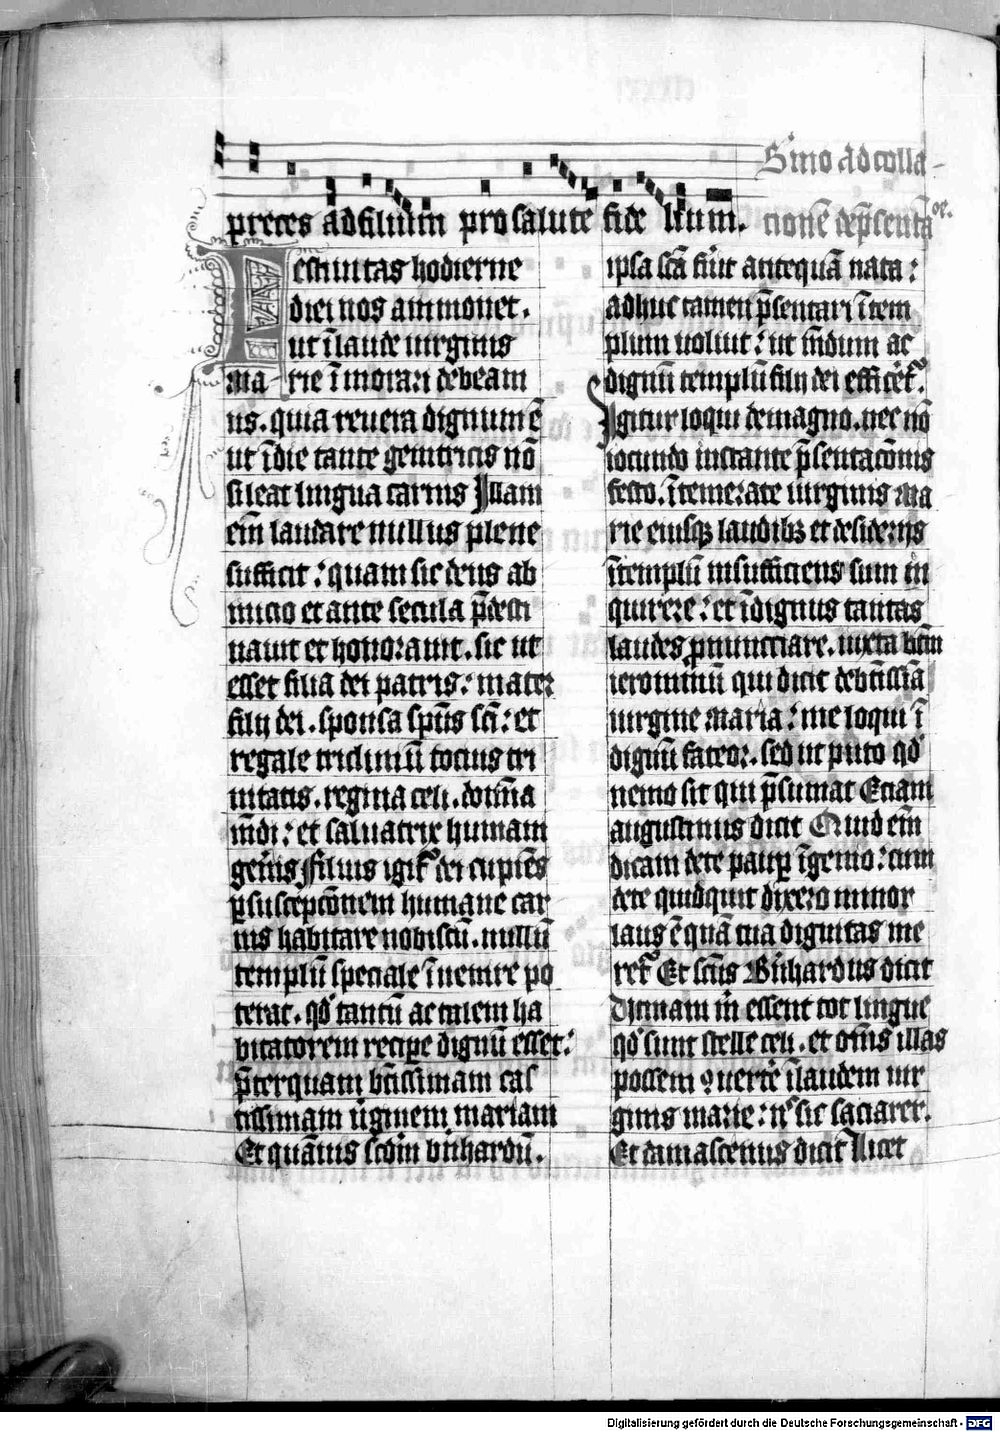 Smo ad colla-
preces ad filium pro salute fide lium. cionē dep̄senta
estiuitas hodierne
diei nos ammonet.
ut ī laude uirginis
ma-rie īmorari debeam
us. quia reuera dignum ē
ut ī die tante genitricis nō
sileat lingua carnis Illam
em̄ laudare nullus plene
sufficit: quam sic deus ab
inicio et ante secula p̄desti
nauit et honorauit. sic ut
esset filia dei patris: mater
filij dei. sponsa sp̄us sc̄i: et
regale tricliniū tocius tri
nitatis. regina celi. domīa
mūdi: et saluatrix humani
gen̄is Filius igit̄ dei cupiēs
p̱ suscepcōnem humane car
nis habitare nobiscū. nullū
templū speciale īuenire po
terat. qd̄ tantū ac talem ha
bitatorem recipe dignū esset:
p̄terquam bt̄issimam cas
tissimam ūginem mariam
Et quāuis scd̄m b̄nhardū.
ipsa sc̄a fūit anteq̄uā nata:
adhuc tamen p̄sentari ī tem
plum uoluit: ut mūdum ac
dignū templū filij dei efficet̄.
Igitur loqui de magno. nec nō
iocundo instante p̄sentacōnis
festo. ītemerate uirginis Ma
rie eiusqꝫ laudibꝫ et desiderijs
ī templū insufficiens sum in
quirere: et īdignus tantas
laudes p̱nunctiare. iuxta btm̄
ieronimū qui dicit de bt̄issīa
uirgine maria: me loqui ī
dignū fateor. sed ut puto qd̄
nemo sit qui p̄sumat Etiam
augustinus dicit Quid em̄
dicam de te paup̱ īgenio: cum
de te quidquit dixero minor
laus ē quā tua dignitas me
ret̄ Et sc̄us B̄nhardus dicit
m̄ essent tot lingue
qd̄ sunt stelle celi. et om̄s illas
possem ꝯuertē ī laudem uir
ginis marie: sic saciarer.
Et damascenus dicit Licet
Digitalisierung gefördert durch die Deutsche Forschungsgemeinschaft - DFG